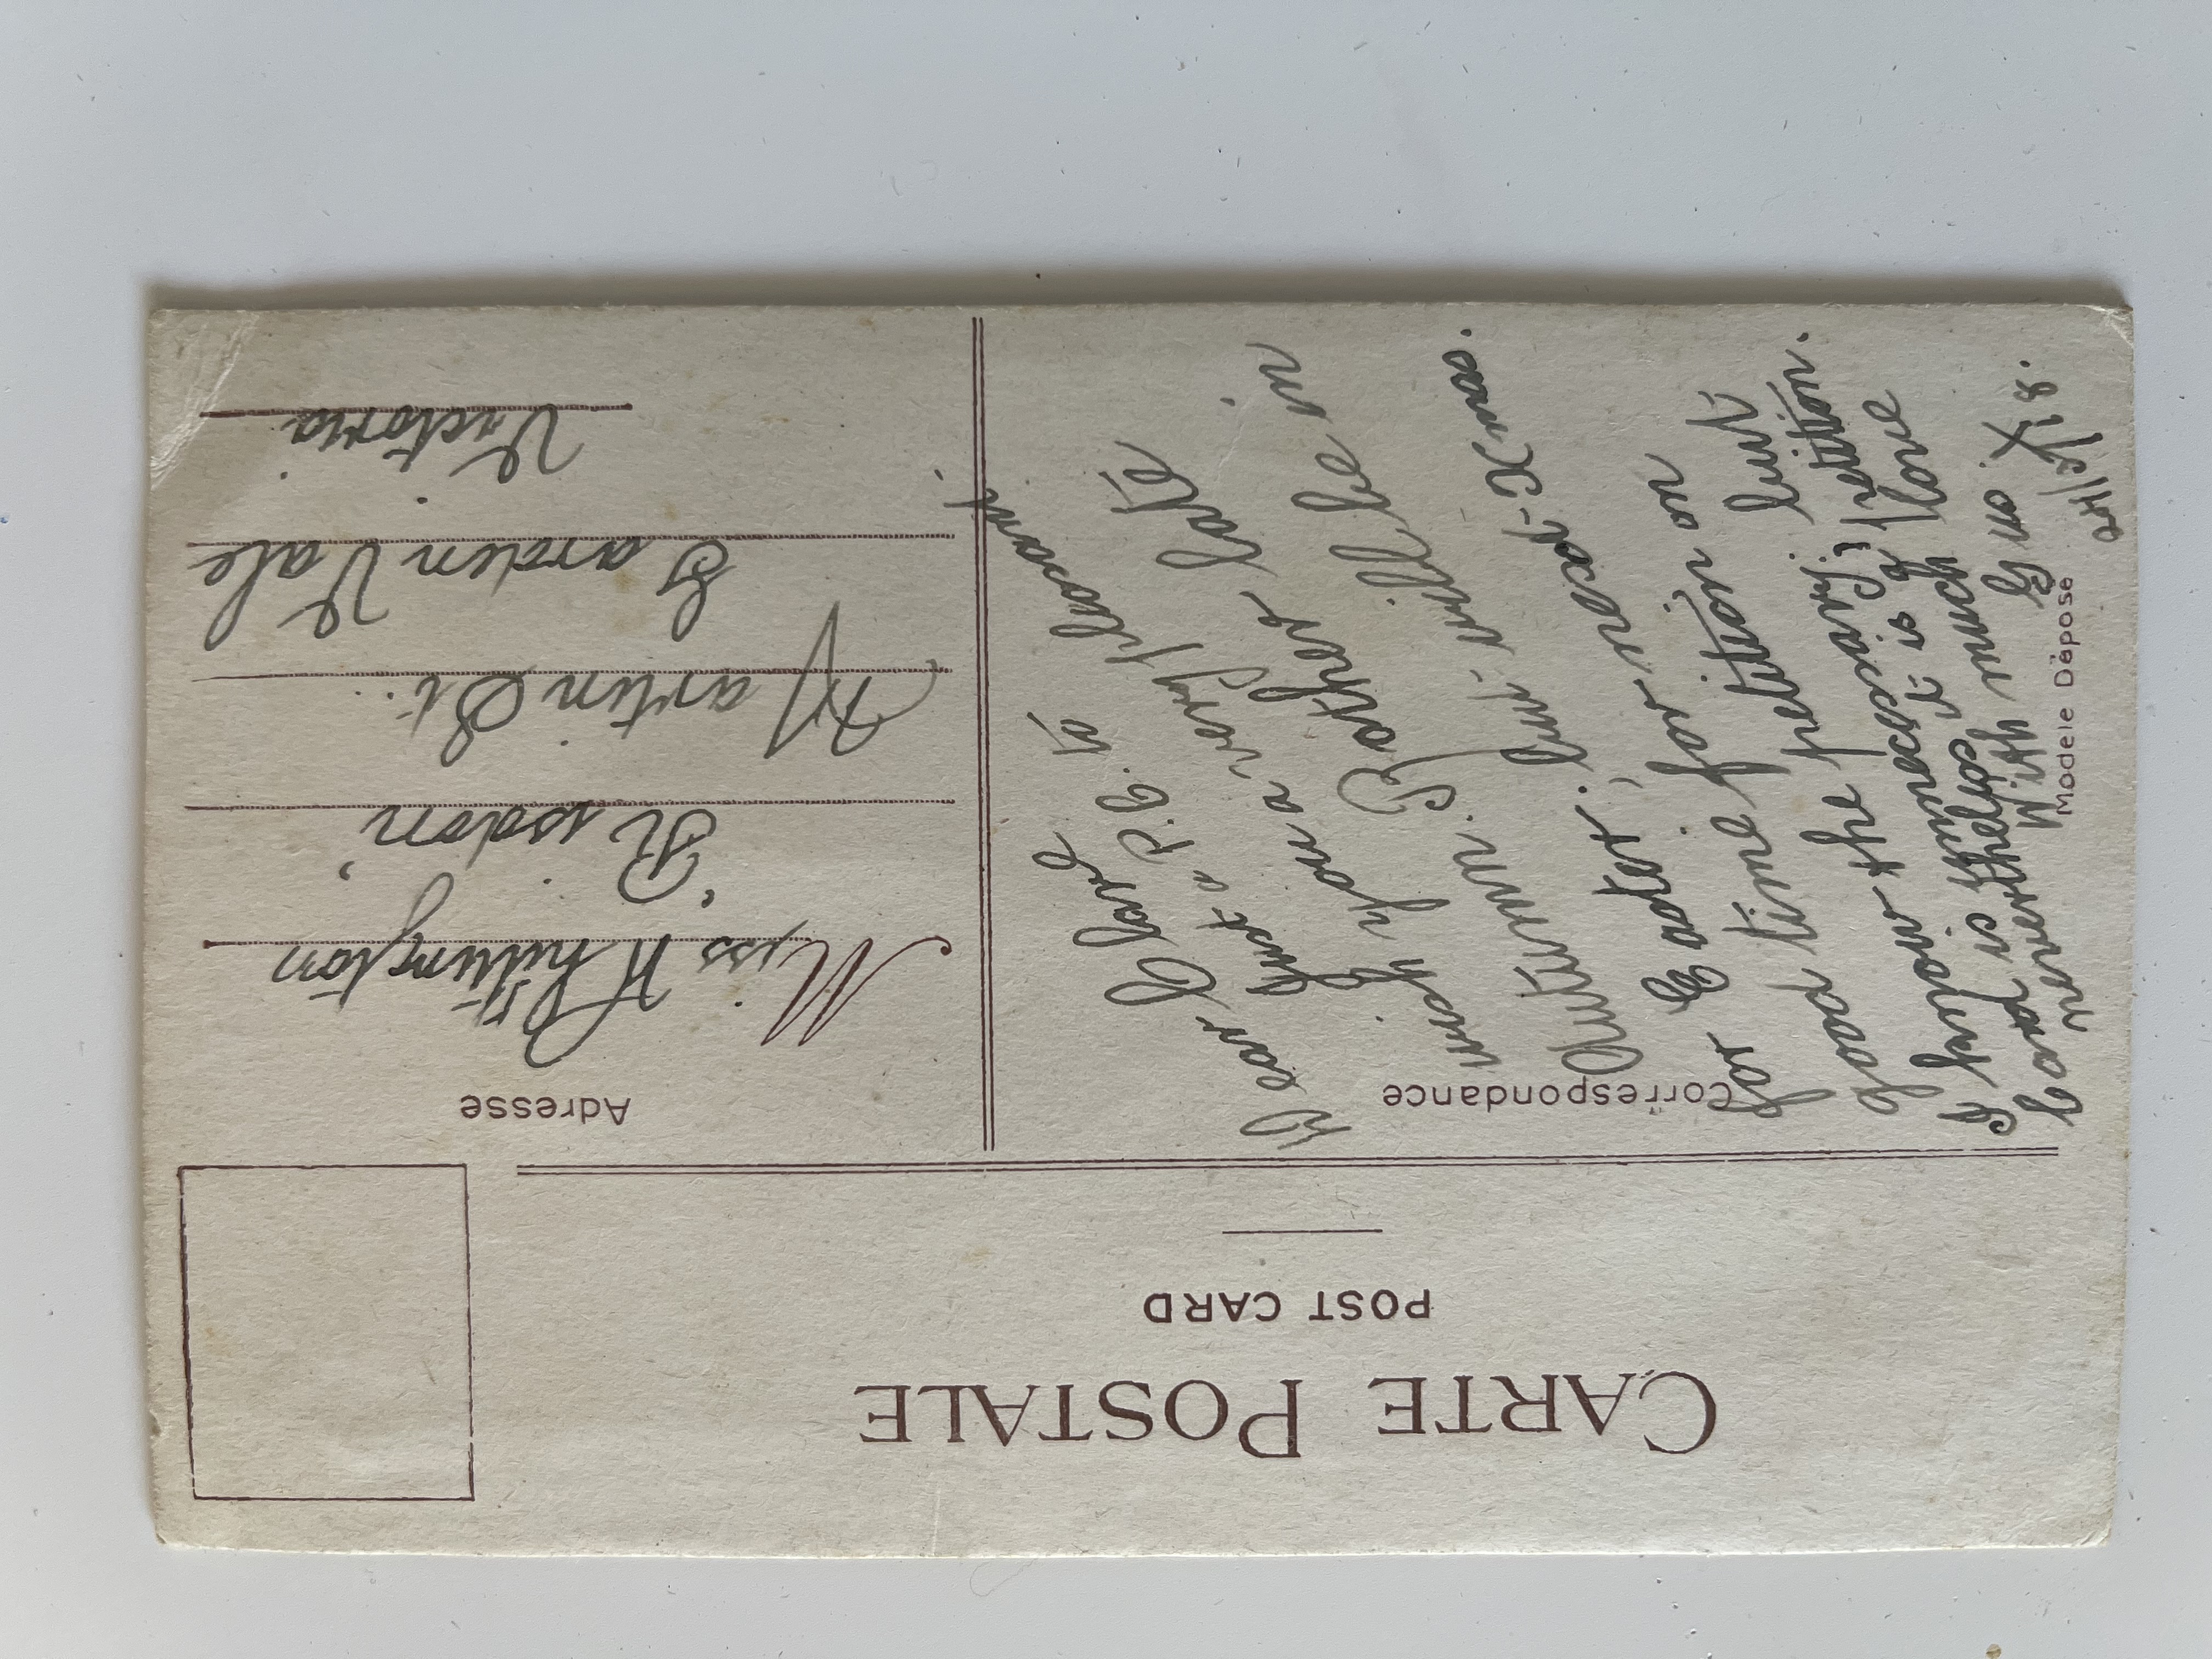 CARTE POSTALE
POST CARD
Correspondance
Dear Clare
Just a P.C. to
wish you a very pleasant
Autumn. Rather late
for Easter, but will be in
good time for next Xmas.
I know the petition on
Card is unnecessary; but
nevertheless it is a petition.
With much love
Gus
Modele Dèposé
Adresse
Miss Whittington
'Risdon'
Martin St.
Garden Vale
Victoria